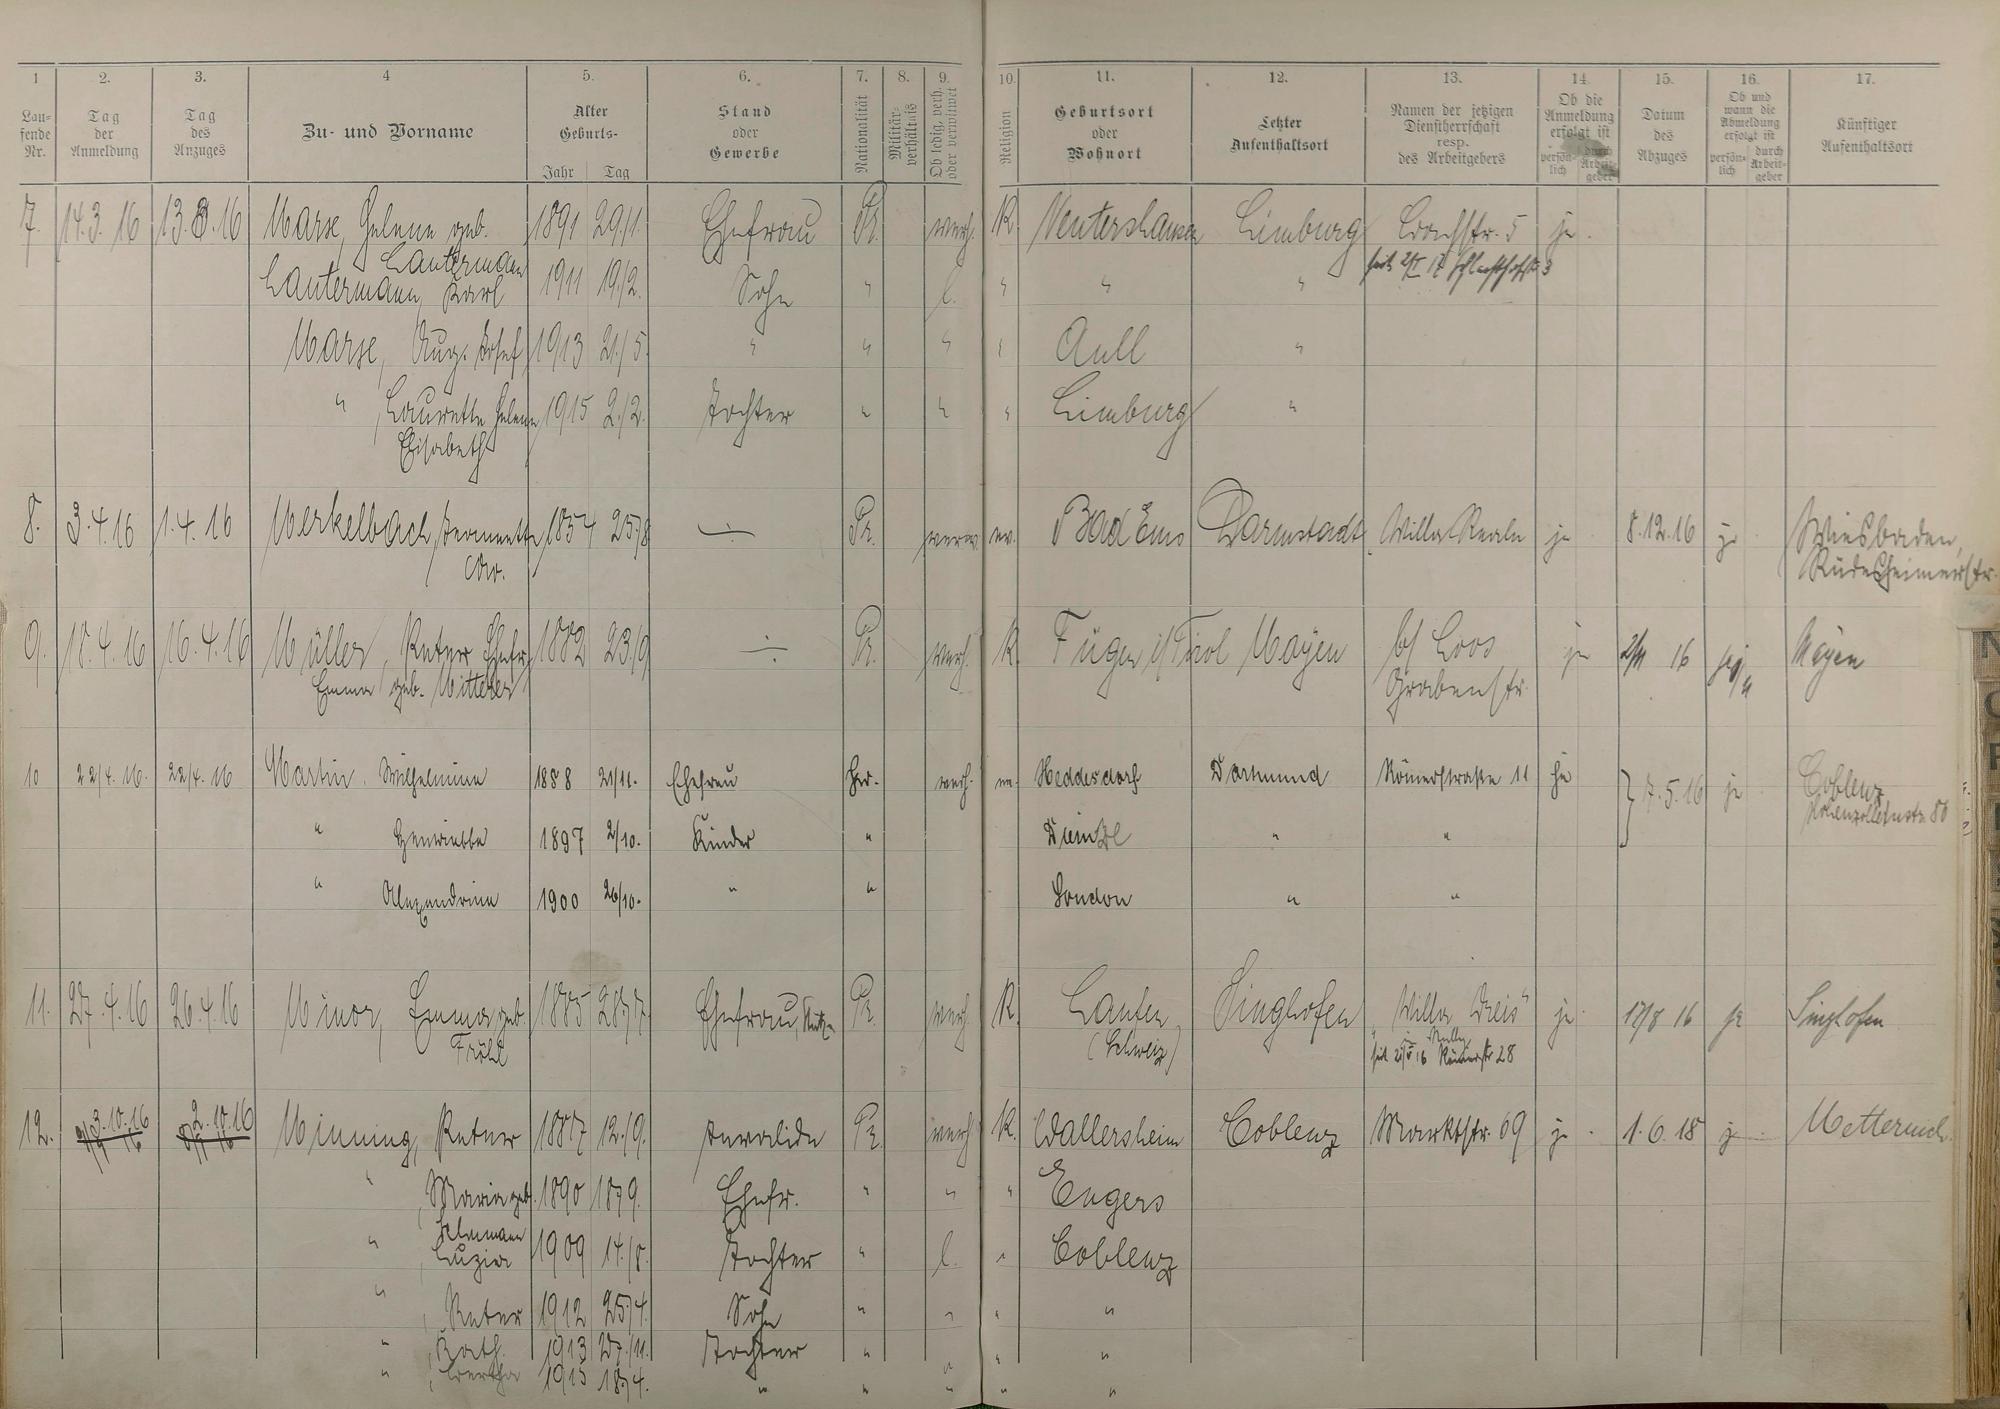 1 2. 3. 4 5. 6. 7. 8. 9. 10. 11. 12. 13. 14. 15. 16. 17.
Lau-
fende
Nr.
Tag
der
Anmeldung
Tag
des
Anzuges
Zu- und Vorname
Alter
Geburts-
Jahr Tag
Stand
oder
Gewerbe
Nationalität
Militär-
verhältnis
Ob ledig, verh.
oder verwitwet
Religion
Geburtsort
oder
Wohnort
Letzter
Aufenthaltsort
Namen der jetzigen
Dienstherrschaft
resp.
des Arbeitgebers
Ob die
Anmeldung
erfolgt ist
persön-
lich
durch
Arbeit-
geber
Datum
des
Abzuges
Ob und
wann die
Abmeldung
erfolgt ist
persön-
lich
durch
Arbeit-
geber
Künftiger
Aufenthaltsort
7. 14.3.16 13.3.16 Marx, Helene geb. 1891 29/1. Ehefrau Pr. verh. K. Limburg ja.
Lautermann
seit 17 Schlachthofstr. 3
Lautermann, Karl 1911 19/2. Sohn " l. " " "
Marx, Aug. Josef 1913 21/5. " " " " Aull "
" , Helene 1915 2/2. Tochter " " " Limburg "
Elisabeth
8. 3.4.16 1.4.16 Merkelbach, 1854 25/8 Pr. verw. ev. Bad Ems Darmstadt Villa ja. 8.12.16 ja. Wiesbaden,
Ww. Rüdesheimerstr.
9. 18.4.16 16.4.16 Müller, Peter Ehefr. 1882 23/9 Pr. verh. K. Fügen i/Tirol Mayen b/ Loos ja 16 Mayen
Emma geb. Mitterer Grabenstr.
10 22/4.16. 22/4.16 Martin, Wilhelmine 1888 21/11. Ehefrau verh. Heddesdorf Dortmund Römerstraße 11 ja 7.5.16 ja Coblenz
Hohenzollernstr. 80
" 1897 2/10. Kinder " " "
" Alexandrine 1900 26/10. " " London " "
11. 27.4.16 26.4.16 Minor, Emma geb. 1885 28/7 Ehefrau, Pr. verh. K. Laufen Singhofen "Villa ja. 17/8 16 ja Singhofen
(Schweiz)
seit 16 Römerstr 28
12. 3.10.16 2.10.16 Minning, Peter 1887 12/9. Invalide Pr. verh. K. Wallersheim Coblenz Marktstr. 69 ja. 1.6.18 ja Metternich.
" , Maria geb. 1890 18/9. Ehefr. " " " Engers
" , Luzia 1909 14/8. Tochter " l. " Coblenz
" , Peter 1912 25/4. Sohn " " " "
" , Kath. 1913 27/11. Tochter " " "
" , Bertha 1915 18/4. " " " " "